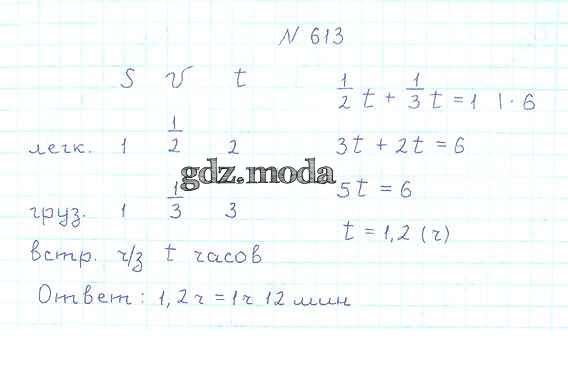 N 613
S v t
легк. 1 1/2 2
груз. 1 1/3 3
встр. ч/з t часов
1/2 t + 1/3 t = 1 | · 6
3t + 2t = 6
5t = 6
t = 1,2 (ч)
Ответ: 1,2ч = 1ч 12 мин
gdz.moda